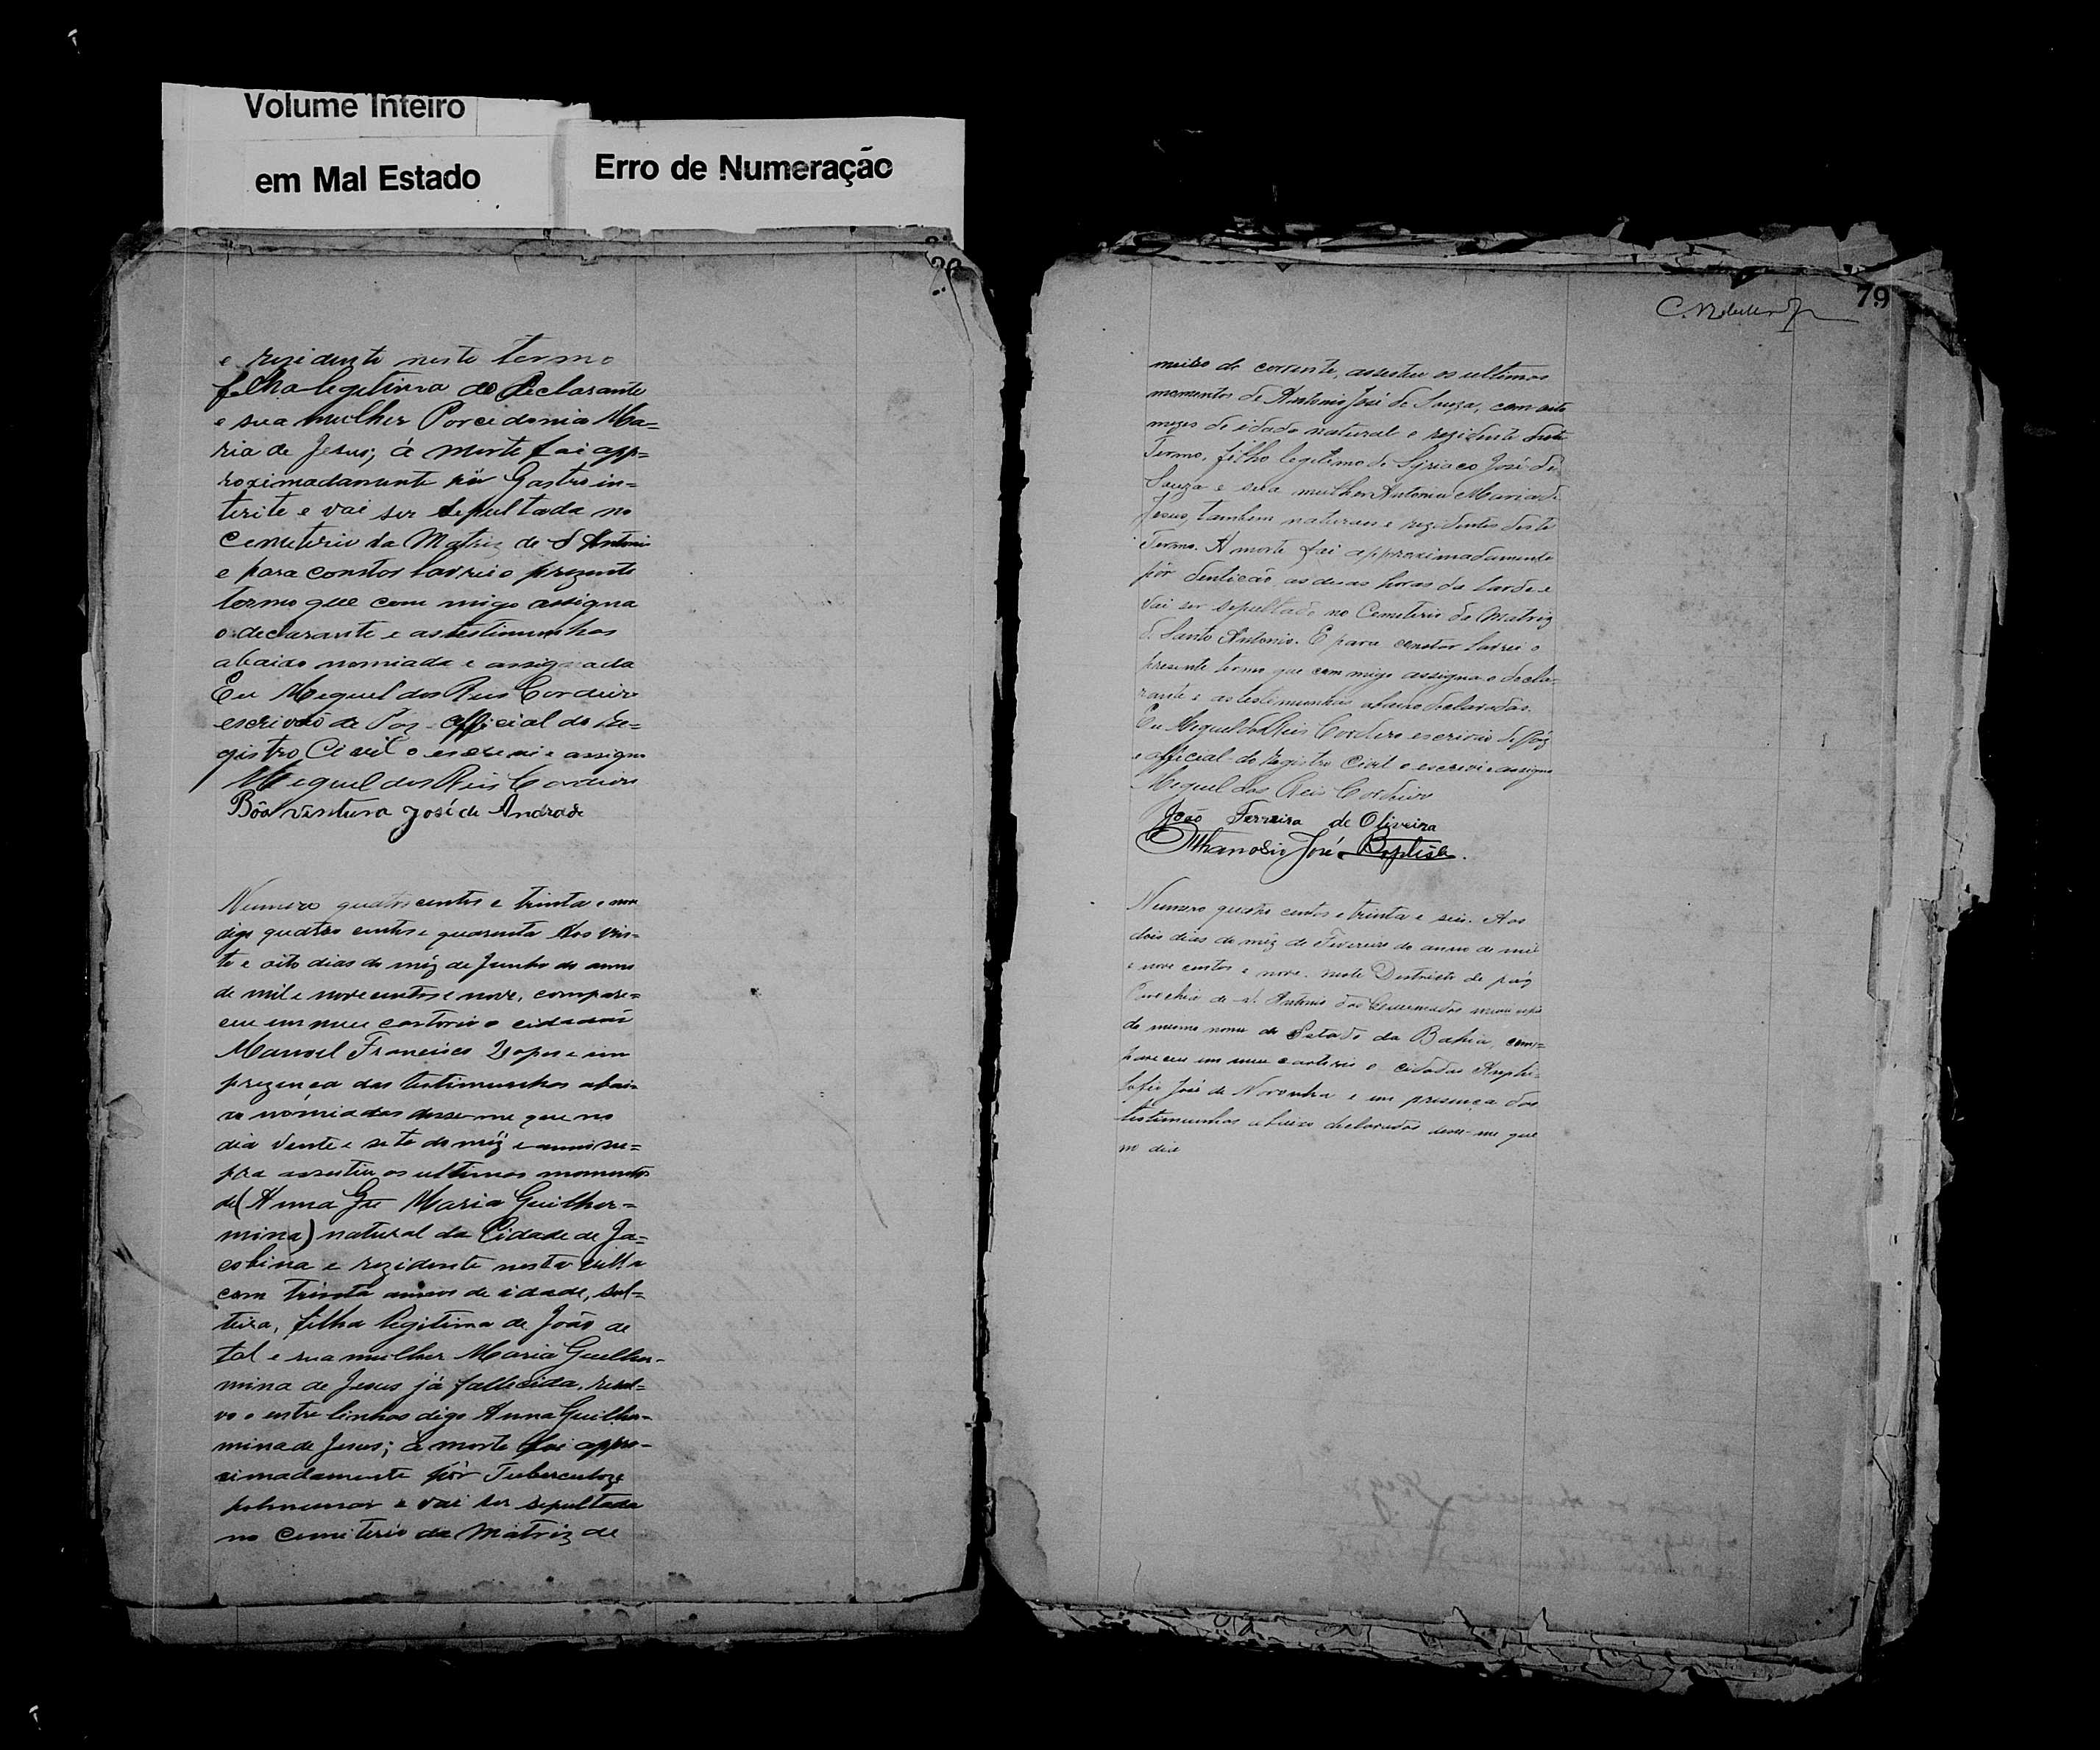 Volume Inteiro
em Mal Estado
Erro de Numeração
e rezidente neste termo
filha legitima do declarante
e sua mulher Porcedonia Ma=
ria de Jesus; á morte foi app=
roximadamente pör Gastro in=
terite e vai ser sepultada no
Cemeterio da Matriz de S Antonio
e para constar lavrei o prezente
termo que com migo assigna
o declarante e as testimunhas
abaixo nomiada e assignada
Eu Miguel dos Reis Cordeiro
escrivão de Paz official do Re=
gistro Civil o escrevi e assigno
Miguel dos Reis Cordeiro
Bôa ventura José de Andrade
Numero quatro centos e trinta e nove
digo quatro centos e quarenta Aos vin=
te e oito dias do mêz de Junho do anno
de mil e novecentos e nove, compare=
ceu em meu cartorio o cidadão
Manoel Francisco Lopes e em
prezença das testimunhas abai=
xo nomiadas disse-me que no
dia vente e sete do mêz e anno su=
pra assestiu os ultimos momentos
de (Anna Maria Guilher=
mina) natural da Cidade de Ja=
cobina e rezidente nesta villa
com trinta annos de idade, sol=
teira, filha legitima de João de
tal e sua mulher Maria Guilher=
mina de Jesus já fallecida, resal=
vo o entre linhas digo Anna Guilher=
mina de Jesus; a morte foi appro=
ximadamente pör Tuberculoze
polmunar e vai ser sepultada
no Cemiterio da Matriz de
79
de corrente, assestiu os ultimos
momentos de Antonio José de Souza, com oito
mezes de idade natural e rezidente deste
Termo, filho legitimo de Syriaco José de
Souza e sua mulher Antonia Maria de
Jesus, tambem naturaes e rezidentes deste
Termo. A morte foi approximadamente
pör dentição as duas horas da tarde e
vai ser sepultado no Cemeterio da Matriz
de Santo Antonio. E para constar lavrei o
presente termo que com migo assigna o decla=
rante e as testimunhas abaixo declaradas.
Eu Miguel dos Reis Cordeiro escrivão de Páz
e official do Registro Civil o escrevi e assigno
Miguel dos Reis Cordeiro
João Ferreira de Oliveira
Athanasio José Baptista.
Numero quatro centos e trinta e seis. Aos
dois dias do mêz de Fevereiro do anno de mil
e nove centos e nove. neste Destricto de páz
de S. Antonio das Queimadas municipio
do mesmo nome do Estado da Bahia, com=
pareceu em meu cartorio o cidadão
José de Noronha e em presença das
testimunhas abaixo declaradas disse-me que
no dia